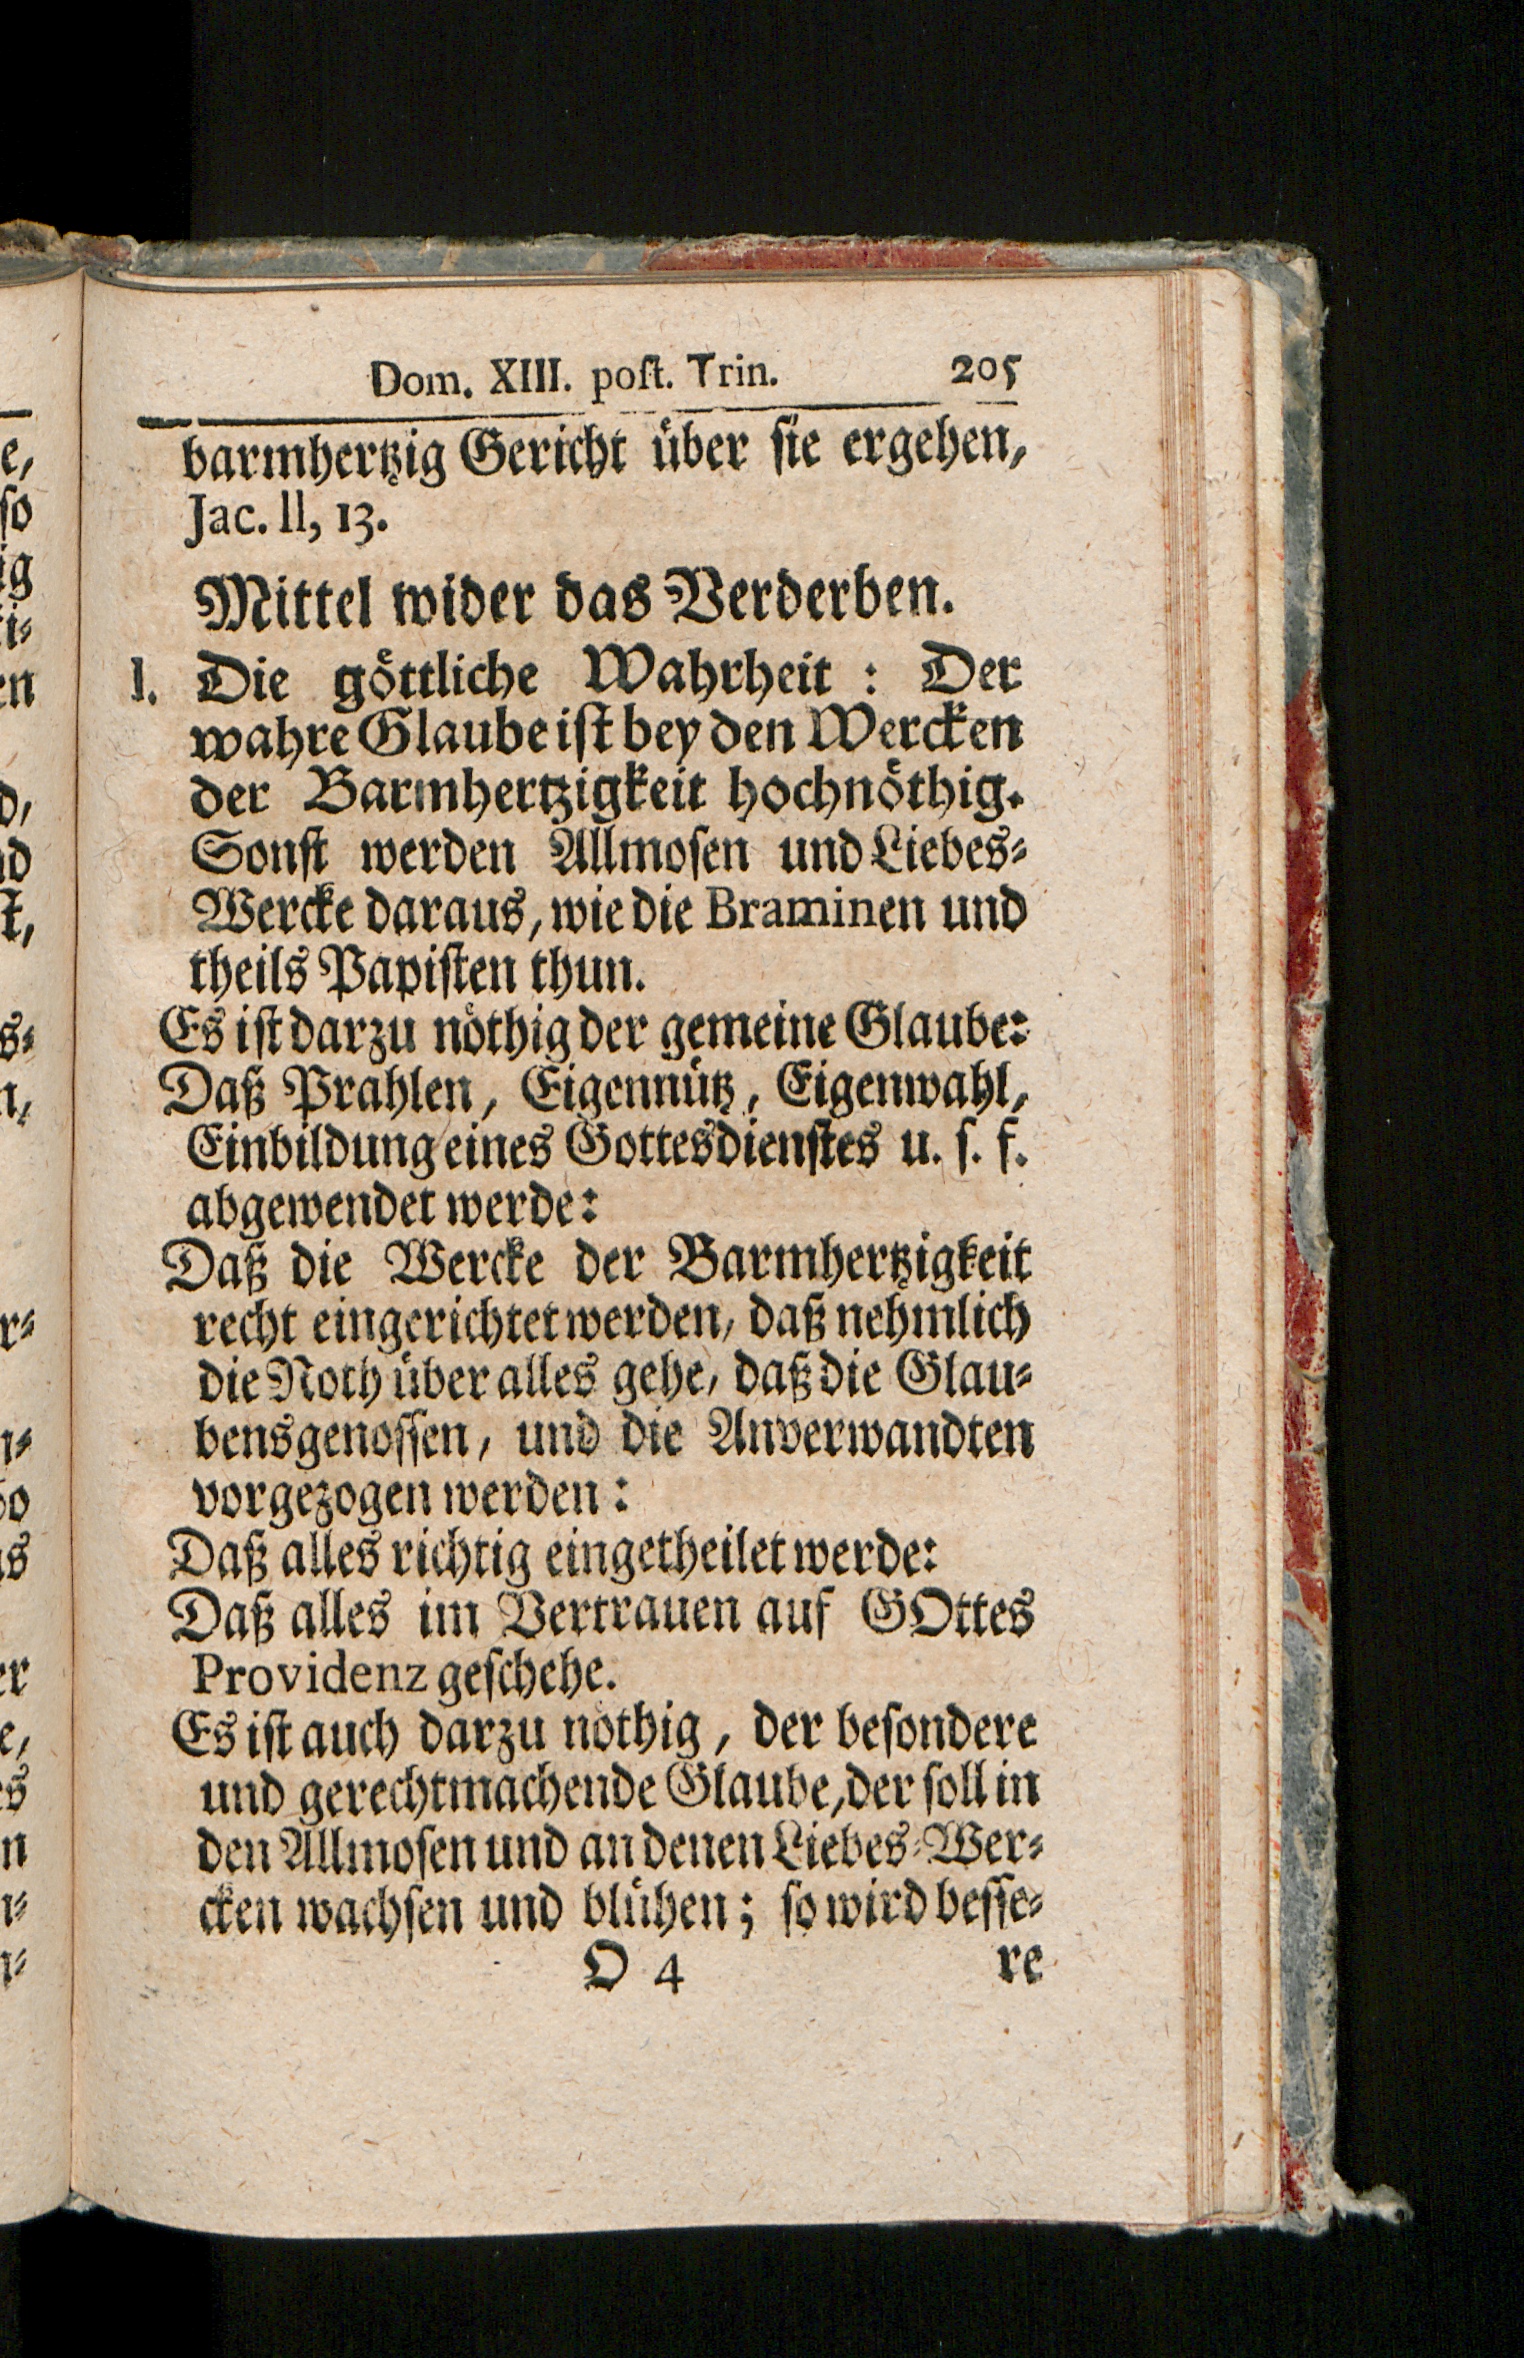 Dom. XIII. poſt. Trin. 205
barmhertzig Gericht über ſie ergehen,
Jac. II, 13.
Mittel wider das Verderben.
I. Die göttliche Wahrheit : Der
wahre Glaube iſt bey den Wercken
der Barmhertzigkeit hochnöthig.
Sonſt werden Allmoſen und Liebes-
Wercke daraus, wie die Braminen und
theils Papiſten thun.
Es iſt darzu nöthig der gemeine Glaube:
Daß Prahlen, Eigennütz, Eigenwahl,
Einbildung eines Gottesdienſtes u. ſ. f.
abgewendet werde:
Daß die Wercke der Barmhertzigkeit
recht eingerichtet werden, daß nehmlich
die Noth über alles gehe, daß die Glau-
bensgenoſſen, und die Anverwandten
vorgezogen werden:
Daß alles richtig eingetheilet werde:
Daß alles im Vertrauen auf GOttes
Providenz geſchehe.
Es iſt auch darzu nöthig, der beſondere
und gerechtmachende Glaube, der ſoll in
den Allmoſen und an denen Liebes-Wer-
cken wachſen und blühen; ſo wird beſſe-
O 4 re